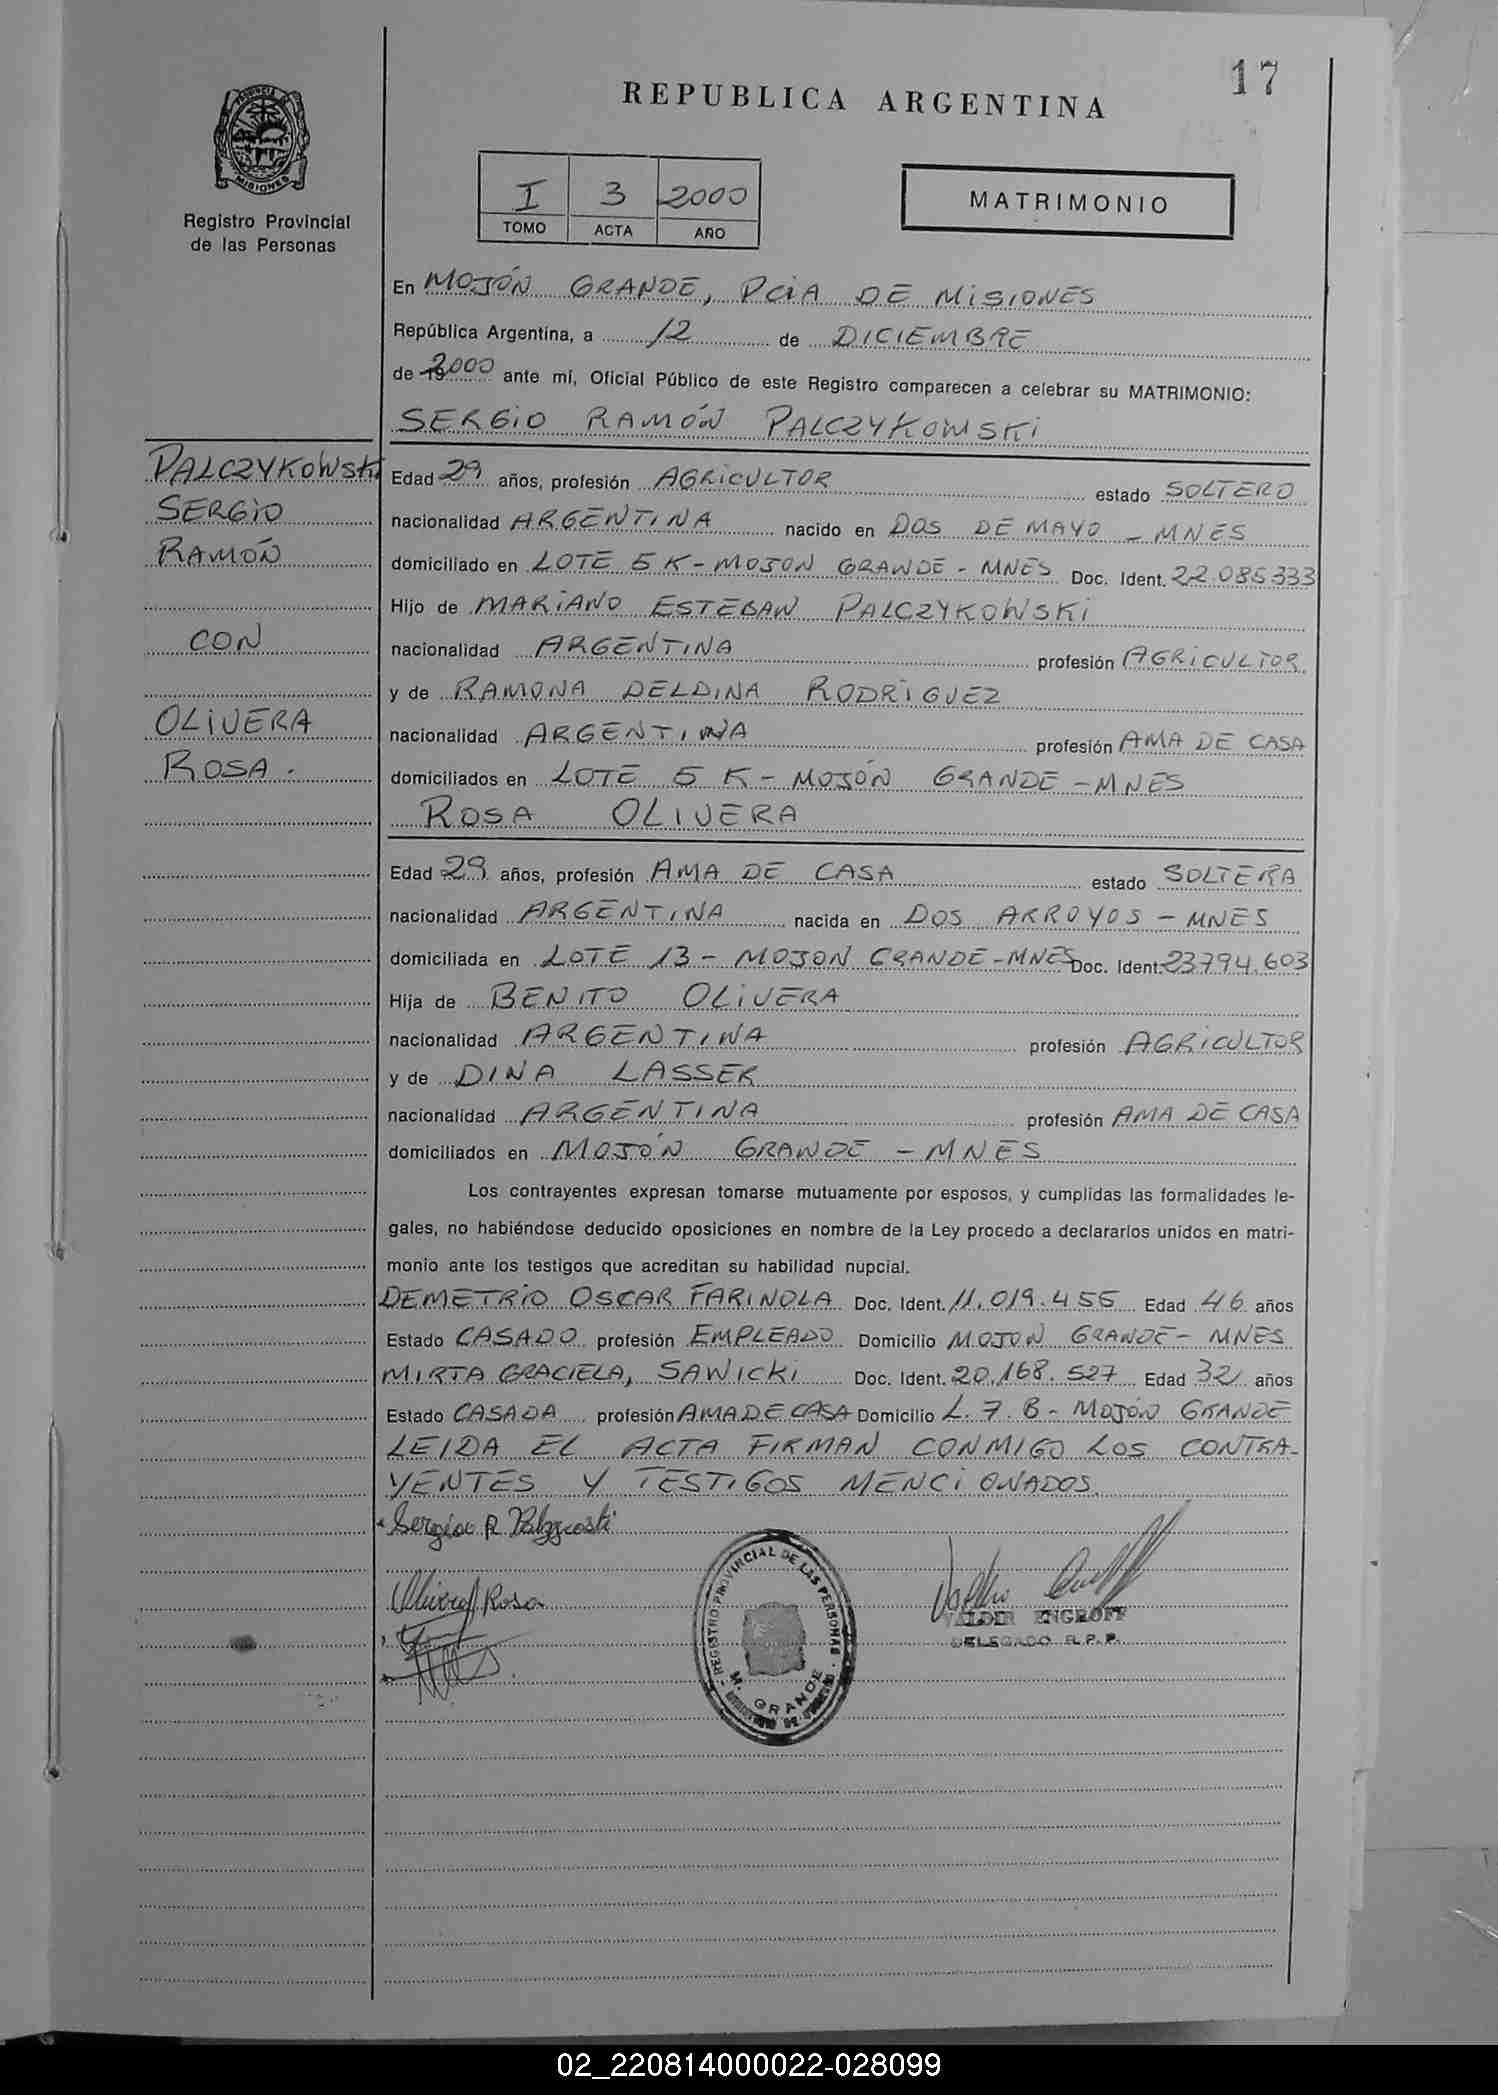 17
REPUBLICA ARGENTINA
PROVINCIA DE
MISIONES
Registro Provincial
de las Personas
I 3 2000
TOMO ACTA AÑO
MATRIMONIO
En MOJÓN GRANDE, PCIA DE MISIONES
República Argentina, a 12 de DICIEMBRE
de 19 2000 ante mí, Oficial Público de este Registro comparecen a celebrar su MATRIMONIO:
SERGIO RAMÓN PALCZYKOWSKI
PALCZYKOWSKI
SERGIO
RAMÓN
CON
OLIVERA
ROSA.
Edad 29 años, profesión AGRICULTOR estado SOLTERO
nacionalidad ARGENTINA nacido en DOS DE MAYO - MNES
domiciliado en LOTE 5 K - MOJON GRANDE - MNES Doc. Ident. 22.085.333
Hijo de MARIANO ESTEBAN PALCZYKOWSKI
nacionalidad ARGENTINA profesión AGRICULTOR
y de RAMONA DELDINA RODRIGUEZ
nacionalidad ARGENTINA profesión AMA DE CASA
domiciliados en LOTE 5 K - MOJÓN GRANDE - MNES
ROSA OLIVERA
Edad 29 años, profesión AMA DE CASA estado SOLTERA
nacionalidad ARGENTINA nacida en DOS ARROYOS - MNES
domiciliada en LOTE 13 - MOJON GRANDE - MNES Doc. Ident. 23794.603
Hija de BENITO OLIVERA
nacionalidad ARGENTINA profesión AGRICULTOR
y de DINA LASSER
nacionalidad ARGENTINA profesión AMA DE CASA
domiciliados en MOJÓN GRANDE - MNES
Los contrayentes expresan tomarse mutuamente por esposos, y cumplidas las formalidades le-
gales, no habiéndose deducido oposiciones en nombre de la Ley procedo a declararlos unidos en matri-
monio ante los testigos que acreditan su habilidad nupcial.
DEMETRIO OSCAR FARINOLA Doc. Ident. 11.019.455 Edad 46 años
Estado CASADO profesión EMPLEADO Domicilio MOJON GRANDE - MNES
MIRTA GRACIELA, SAWICKI Doc. Ident. 20.168.527 Edad 32 años
Estado CASADA profesión AMA DE CASA Domicilio L. 7. B - MOJÓN GRANDE
LEIDA EL ACTA FIRMAN CONMIGO LOS CONTRA-
YENTES Y TESTIGOS MENCIONADOS.
Sergio R
Olivera Rosa
REGISTRO PROVINCIAL DE LAS PERSONAS
M. GRANDE
VALDIR ENGROFF
DELEGADO R.P.P.
02_220814000022-028099